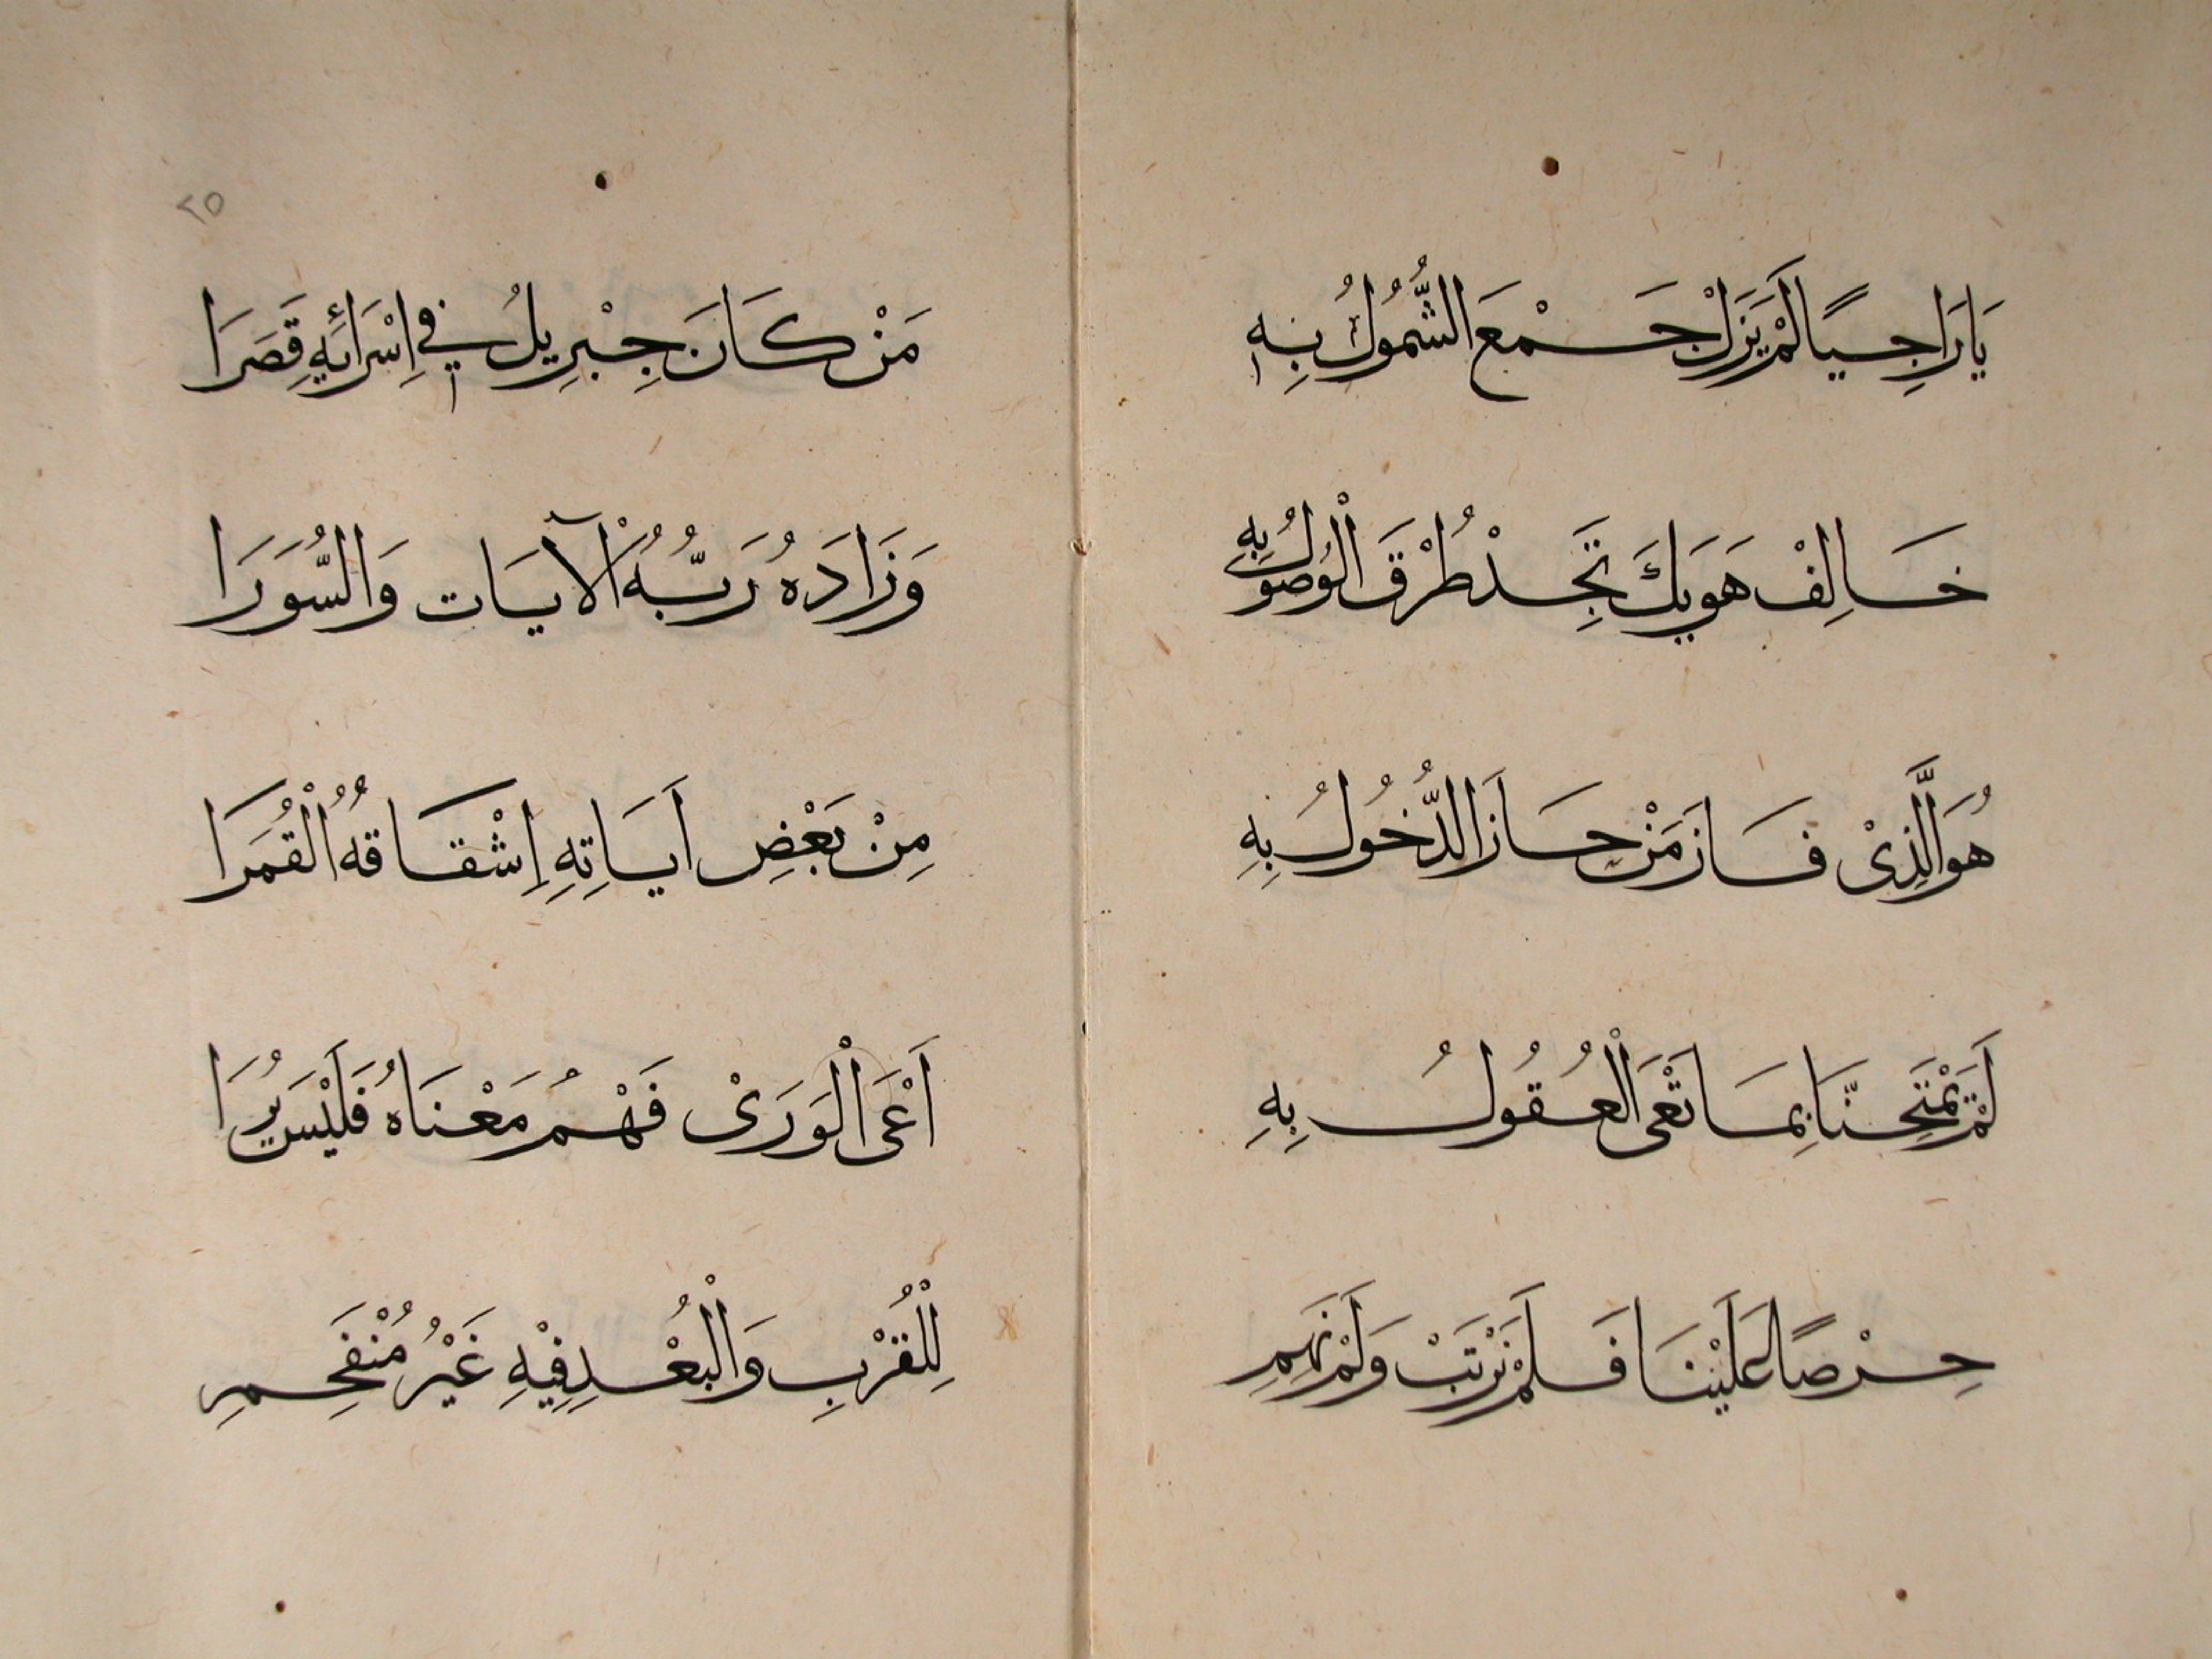 يَا رَاجِيًا لَمْ يَزَلْ جَمْعَ الشُّمُولُ بِهِ
خَالِفْ هَوَيكَ تَجِدْ طُرْقَ الْوُصُولُ بِهِ
هُوَ الَّذِىْ فَازَ مَنْ حَازَ الدُّخُولُ بِهِ
لَمْ يَمْتَحِنَّا بِمَا تَعْىَ الْعُقُولُ بِهِ
حِرْصًا عَلَيْنَا فَلَمْ نَرْتَبْ وَلَمْ نَهِمِ
٢٥
مَنْ كَانَ جِبْرِيلُ فِي اِسْرَائِهِ قِصَرَا
وَزَادَهُ رَبُّهُ الْآيَات وَالسُّوَرَا
مِنْ بَعْضِ اَيَاتِهِ اِشْقَاقهُ الْقُمَرَا
اَعْىَ الْوَرَىْ فَهْمُ مَعْنَاهُ فَلَيْسَ يُرَا
لِلْقُرْبِ وَالْبُعْدِ فِيْهِ غَيْرُ مُنْفَحِمِ